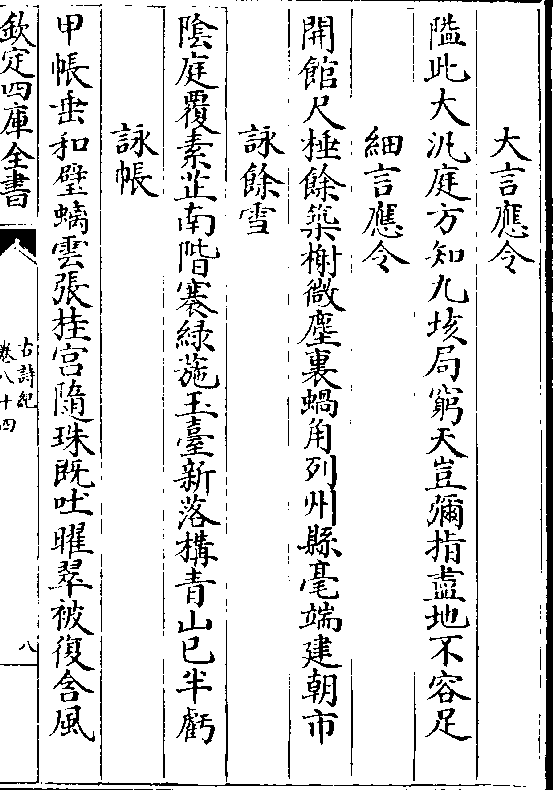 大言應令
隘此大汎庭方知九垓局窮天豈彌指盡地不容足
細言應令
開館尺棰餘築榭微塵裏蝸角列州縣毫端建朝市
詠餘雪
陰庭覆素芷南階褰綠葹玉臺新落構青山已半虧
詠帳
甲帳垂和璧螭雲張桂宮隨珠既吐曜翠被復含風
欽定四庫全書
古詩紀
卷八十四
八